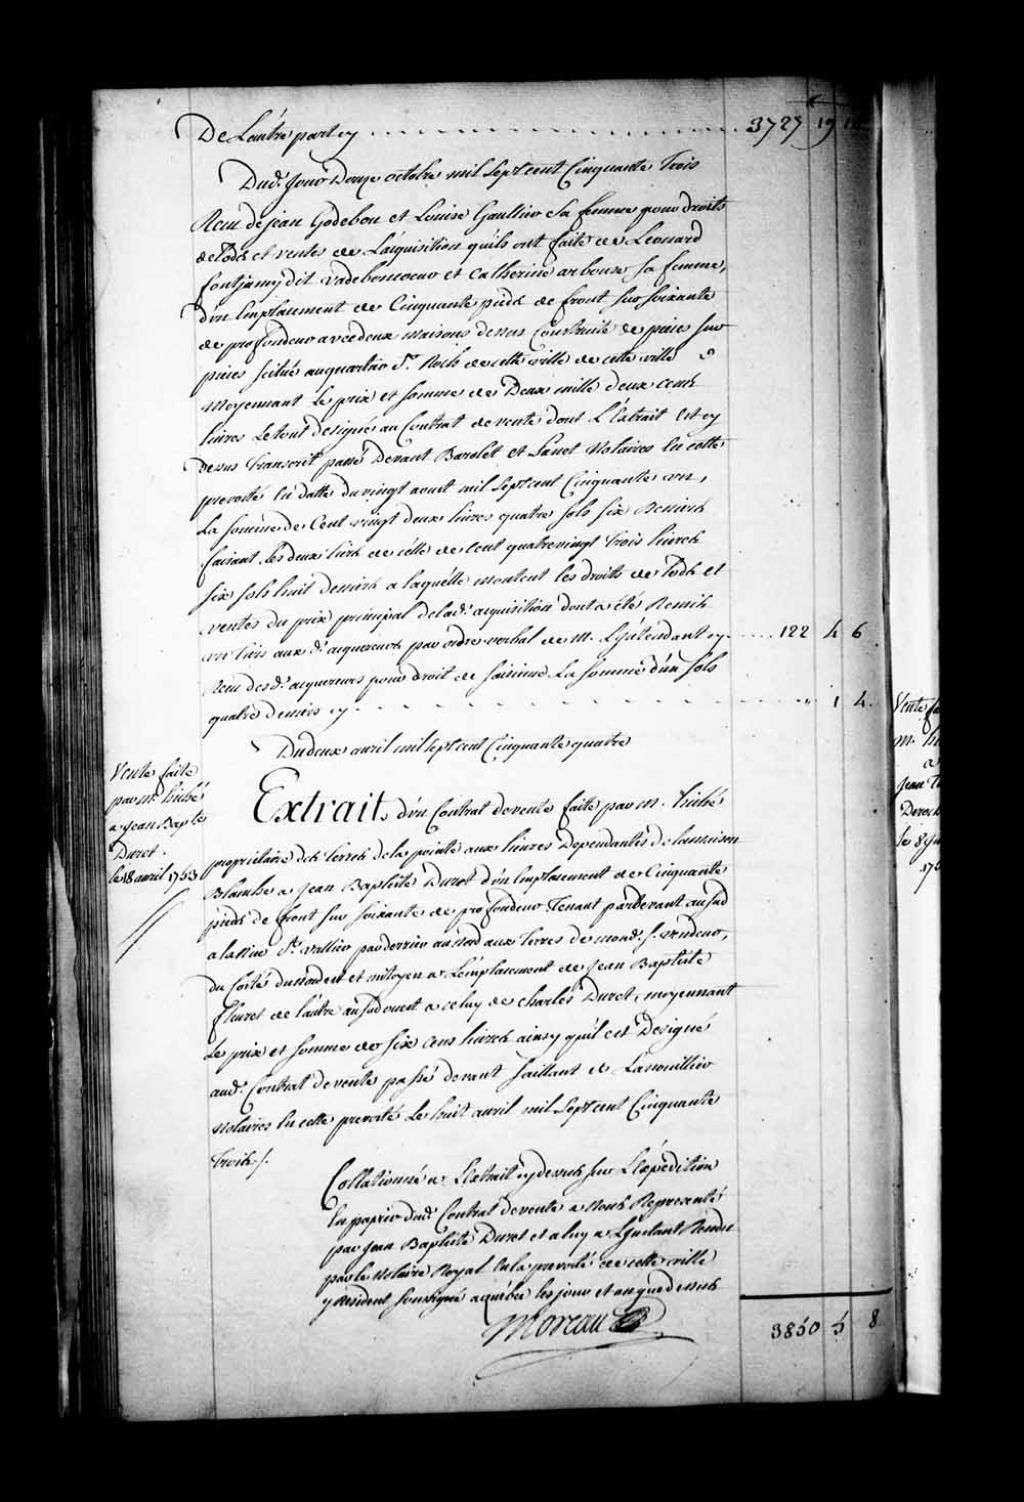 De L'autre part cy ........ 3727 19 10
Dud.t Jour Douze octobre mil Sept cent Cinquante Trois
Recu de jean Godebou et Louise Gaultier Sa femme pour droits
de Lods et ventes de L'acquisition qu'ils ont faite de Leonard
fontjamy dit vadeboncoeur et Catherine arbour sa femme,
d'un Emplacement de Cinquante pieds de front sur Soixante
de profondeur avec deux maisons dessus Construite de pieces sur
pieces scitué au quartier S.t Roch de cette ville de cette ville
Moyennant Le prix et somme de Deux mille deux cents
livres Le tout designé au Contrat de vente dont L'Extrait est cy
dessus transcrit passé Devant Barolet et Panet Notaires En cette
prevoté En datte du vingt aoust mil Sept cent Cinquante un,
La somme de Cent vingt deux livres quatre sols six Deniers
faisant les deux tiers de celle de Cent quatrevingt Trois livres
six sols huit deniers a laquelle montent les droits de Lods et
ventes du prix principal de lad.e acquisition dont a été Remis
un tiers aux d.s acquereurs par ordre verbal de M. L'Intendant cy ..... 122 4 6
Recu desd.s acquereurs pour droit de saisinne La somme d'un sols
quatre deniers cy ........ " 1 4.
Du deux avril mil sept cent Cinquante quatre
Vente faite
par M. hiché
a Jean Bap.te
Duret.
le 18 avril 1753
Extrait d'un Contrat de vente faite par M. hiché
proprietaire des terres de la pointe aux lievres Dependantes de la maison
Blanche a Jean Baptiste Duret d'un Emplacement de Cinquante
pieds de front sur soixante de profondeur Tenant pardevant au sud
a la Rue S.t vallier par derriere au nord aux Terres de mond. s. vendeur,
du costé du nordest et mitoyen a L'emplacement de Jean Baptiste
fleuret de l'autre au sud ouest a celuy de charles Duret, moyennant
Le prix et somme de six cens livres ainsy qu'il est Designé
aud. Contrat de vente passé devant Saillant et Lanouillier
Notaires En cette prevoté Le huit avril mil Sept cent Cinquante
trois ./.
Collationné a L'extrait cy dessus sur L'expedition
En papier dud. Contrat de vente a Nous Representé
par Jean Baptiste Duret et a luy a L'instant Rendu
par le Notaire Royal En la prevoté de cette ville
y Resident soussigné a quebec les jour et an que dessus
Moreau
3850 5 8
Vente
M.
a
Jean
Duroch
le 8